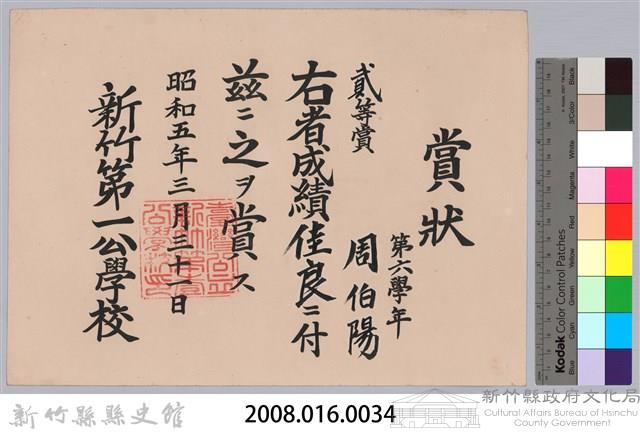 賞狀
第六學年
周伯陽
貳等賞
右者成績佳良ニ付
茲ニ之ヲ賞ス
昭和五年三月三十一日
新竹第一公學校
Kodak Color Control Patches
Blue
Cyan
Green
Yellow
Red
Magenta
White
3/Color
Black
新竹縣縣史館
2008.016.0034
新竹縣政府文化局
Cultural Affairs Bureau of Hsinchu
County Government